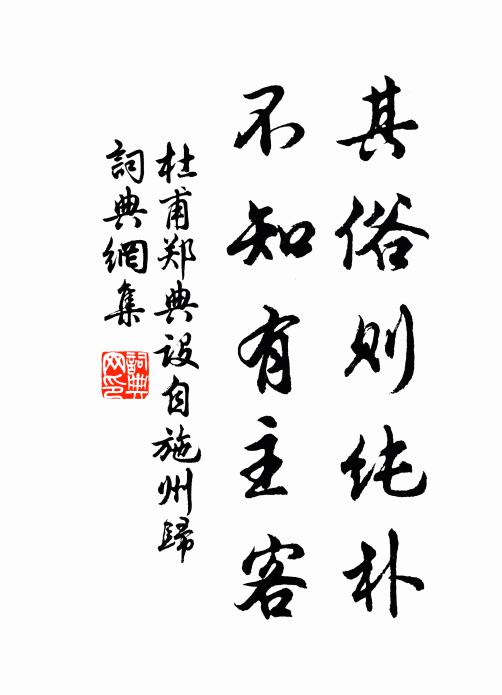 其俗则纯朴
不知有主客
杜甫郑典设自施州歸
詞典網集
詞典
网印